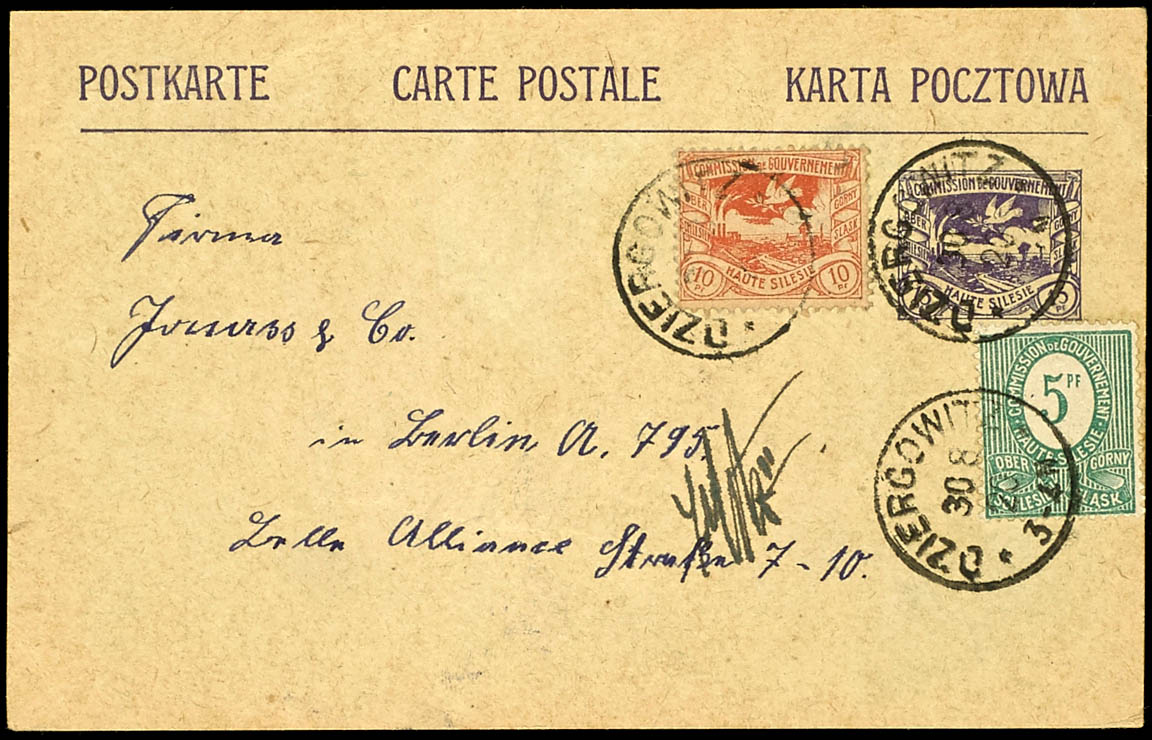 POSTKARTE CARTE POSTALE KARTA POCZTOWA
COMMISSION DE GOUVERNEMENT
OBER GÓRNY
ŚLĄSK
10 PF HAUTE SILESIE 10 PF
DZIERGOWITZ *
COMMISSION DE GOUVERNEMENT
OBER GÓRNY
HAUTE SILESIE
DZIERGOWITZ *
30
20
N
COMMISSION DE GOUVERNEMENT
5 PF
HAUTE SILESIE
OBER GÓRNY
SCHLESIEN ŚLĄSK
DZIERGOWITZ *
30 8
3-4 N
Firma
Jonass & Co.
in Berlin A. 795
Belle Alliance Straße 7-10.